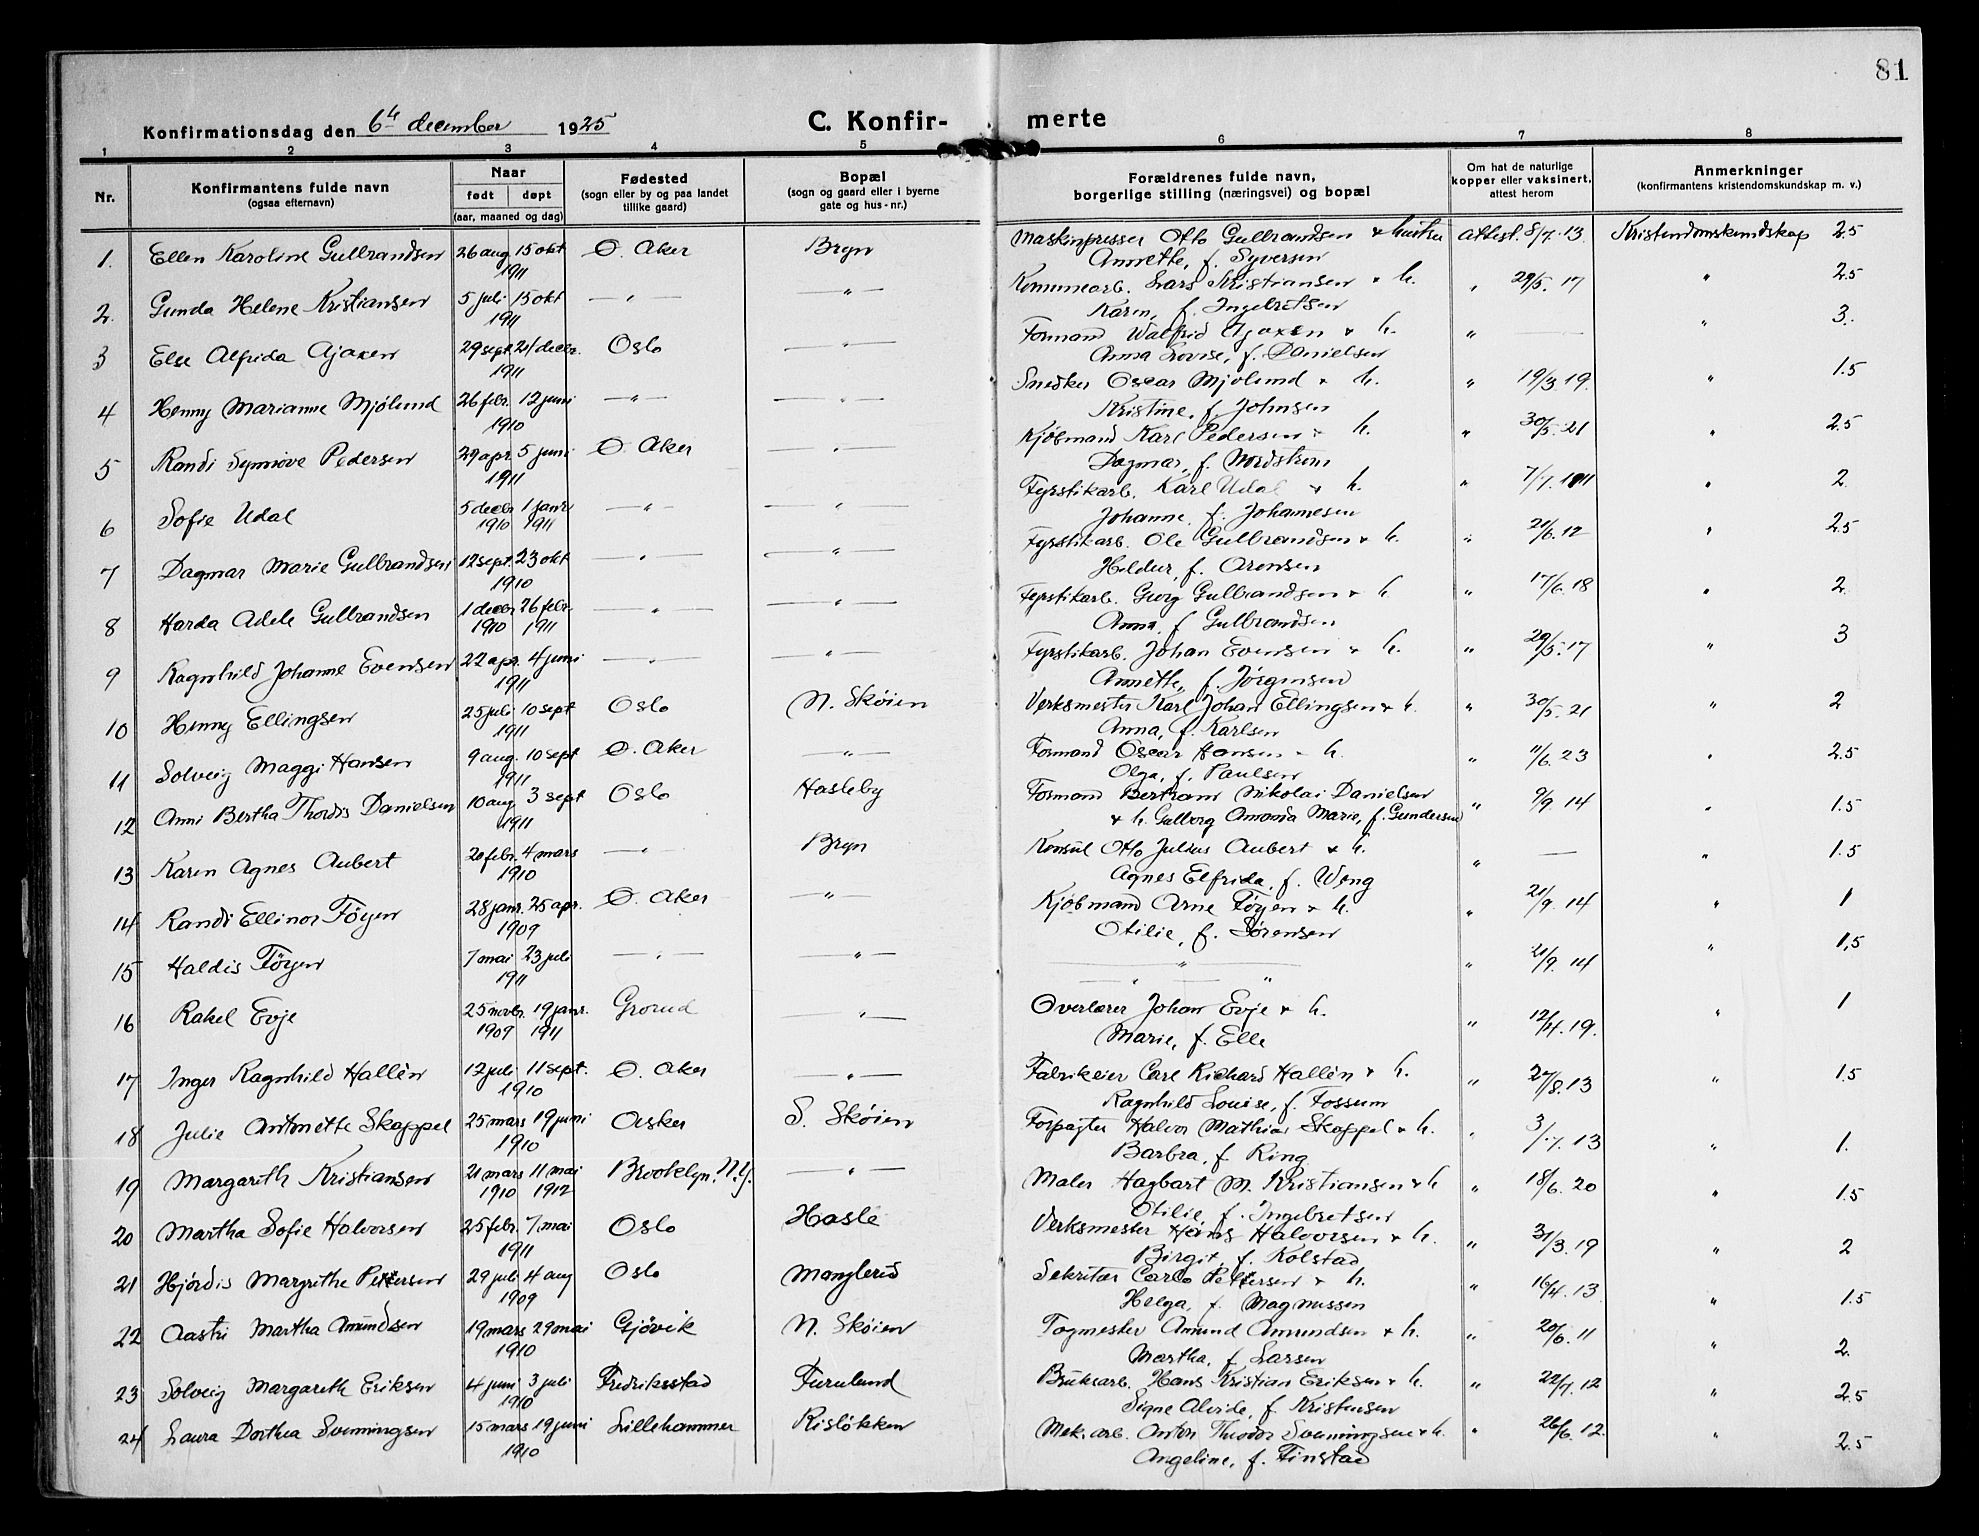 81
Konfirmationsdag den 6te december 1925 C. Konfir- merte
1 2 3 4 5 6 7 8
Nr. Konfirmantens fulde navn (ogsaa efternavn) Naar født døpt (aar, maaned og dag) Fødested (sogn eller by og paa landet tillike gaard) Bopæl (sogn og gaard eller i byerne gate og hus-nr.) Forældrenes fulde navn, borgerlige stilling (næringsvei) og bopæl Om hat de naturlige kopper eller vaksinert, attest herom Anmerkninger (konfirmantens kristendomskundskap m. v.)
1. Ellen Karoline Gulbrandsen 26 aug. 15 okt 1911 Ø. Aker Bryn Maskinpresser Otto Gulbrandsen & hustru Attest. 8/7. 13. Kristendomskundskap 2.5
Annette, f. Syversen
2. Gunda Helene Kristiansen 5 juli 15 okt 1911 — " — — " — Kommunearb. Lars Kristiansen & h. " 29/5. 17 " 2.5
Karen, f. Ingebretsen
3 Else Alfrida Ajaxen 29 sept. 21 decbr. 1911 Oslo — " — Formand Walfrid Ajaxen & h. " — " 3.
Anna Lovise, f. Danielsen
4 Henny Marianne Mjölund 26 febr. 12 juni 1910 — " — — " — Snedker Oscar Mjölund & h. " 19/3 19. " 1.5
Kristine, f. Johnsen
5 Randi Synnöve Pedersen 29 apr. 5 juni 1911 Ø Aker — " — Kjöbmand Karl Pedersen & h. " 30/5. 21 " 2.5
Dagmar, f. Nordström
6 Sofie Udal 5 decbr. 1910 1 janr. 1911 — " — — " — Fyrstikarb. Karl Udal & h. " 7/7. 1911 " 2
Johanne f. Johannesen
7 Dagmar Marie Gulbrandsen 12 sept. 23 okt 1910 — " — — " — Fyrstikarb. Ole Gulbrandsen & h. " 21/6. 12 " 2.5
Heldur, f. Arensen
8 Harda Adele Gulbrandsen 1 decbr. 1910 26 febr. 1911 — " — — " — Fyrstikarb. Georg Gulbrandsen & h " 17/6. 18 " 2
Anna, f Gulbrandsen
9 Ragnhild Johanne Evensen 22 apr. 4 juni 1911 — " — — " — Fyrstikarb. Johan Evensen & h. " 29/5. 17 " 3
Annette, f. Jörgensen
10 Henny Ellingsen 25 juli 10 sept 1911 Oslo N. Skøien Verksmester Karl Johan Ellingsen & h. " 30/5. 21 " 2
Anna, f. Karlsen
11 Solveig Maggi Hansen 9 aug. 10 sept 1911 Ø. Aker — " — Formand Oscar Hansen & h. " 11/6. 23 " 2.5
Olga, f. Paulsen
12 Anni Bertha Thordis Danielsen 10 aug 3 sept 1911 Oslo Hasleby Formand Bertram Nikolai Danielsen " 9/9. 14 " 1.5
& h. Gulborg Amanda Marie, f. Gundersen
13 Karen Agnes Aubert 20 febr. 4 mars 1910 — " — Bryn Konsul Otto Julius Aubert & h. " — " 1.5
Agnes Elfrida, f. Weng
14 Randi Ellinor Föyen 28 janr. 25 apr. 1909 Ø. Aker — " — Kjöbmand Arne Föyen & h. " 21/9. 14 " 1
Otilie, f. Sörensen
15 Haldis Föyen 7 mai 23 juli 1911 — " — — " — — " — " 21/9. 14 " 1,5
— " — " —
16 Rakel Evje 25 novbr. 1909 19 janr. 1911 Grorud — " — Overlærer Johan Evje & h. " 12/4. 19. " 1
Marie, f. Elle
17 Inger Ragnhild Hallén 12 juli 11 sept. 1910 Ø. Aker — " — Fabrikeier Carl Richard Hallén & h. " 27/8. 13 " 1.5
Ragnhild Louise, f. Fossum
18 Julie Antonette Skappel 25 mars 19 juni 1910 Asker S. Skøien Forpagter Halvor Mathias Skappel & h. " 3/7. 13 " 1.
Barbra, f. Ring
19 Margareth Kristiansen 21 mars 1910 11 mai 1912 Brooklyn. N.Y. — " — Maler Hagbart M. Kristiansen & h " 18/6. 20 " 1.5
Otilie, f. Ingebretsen
20 Martha Sofie Halvorsen 25 febr. 7. mai 1911 Oslo Hasle Verksmester Hans Halvorsen & h. " 31/3. 19 " 2
Birgit, f. Kolstad
21 Hjördis Margrethe Pettersen 29 juli 4 aug 1909 Oslo Manglerud Sekretær Carlo Pettersen & h. " 16/4. 13. " 1.5
Helga, f. Magnussen
22 Aastri Martha Amundsen 19 mars 29 mai 1910 Gjövik N. Skøien Togmester Amund Amundsen & h. " 20/6. 11 " 2.
Martha, f Larsen
23 Solveig Margareth Eriksen 4 juni 3 juli 1910 Fredriksstad Furulund Bruksarb. Hans Kristian Eriksen & h. " 22/7. 12 " 2.5
Signe Alvide, f. Kristensen
24 Laura Dorthea Svenningsen 15 mars 19 juni 1910 Lillehammer Risløkken Mek. arb. Anton Theodor Svenningsen & h. " 26/6. 12. " 2.5
Angeline, f. Finstad